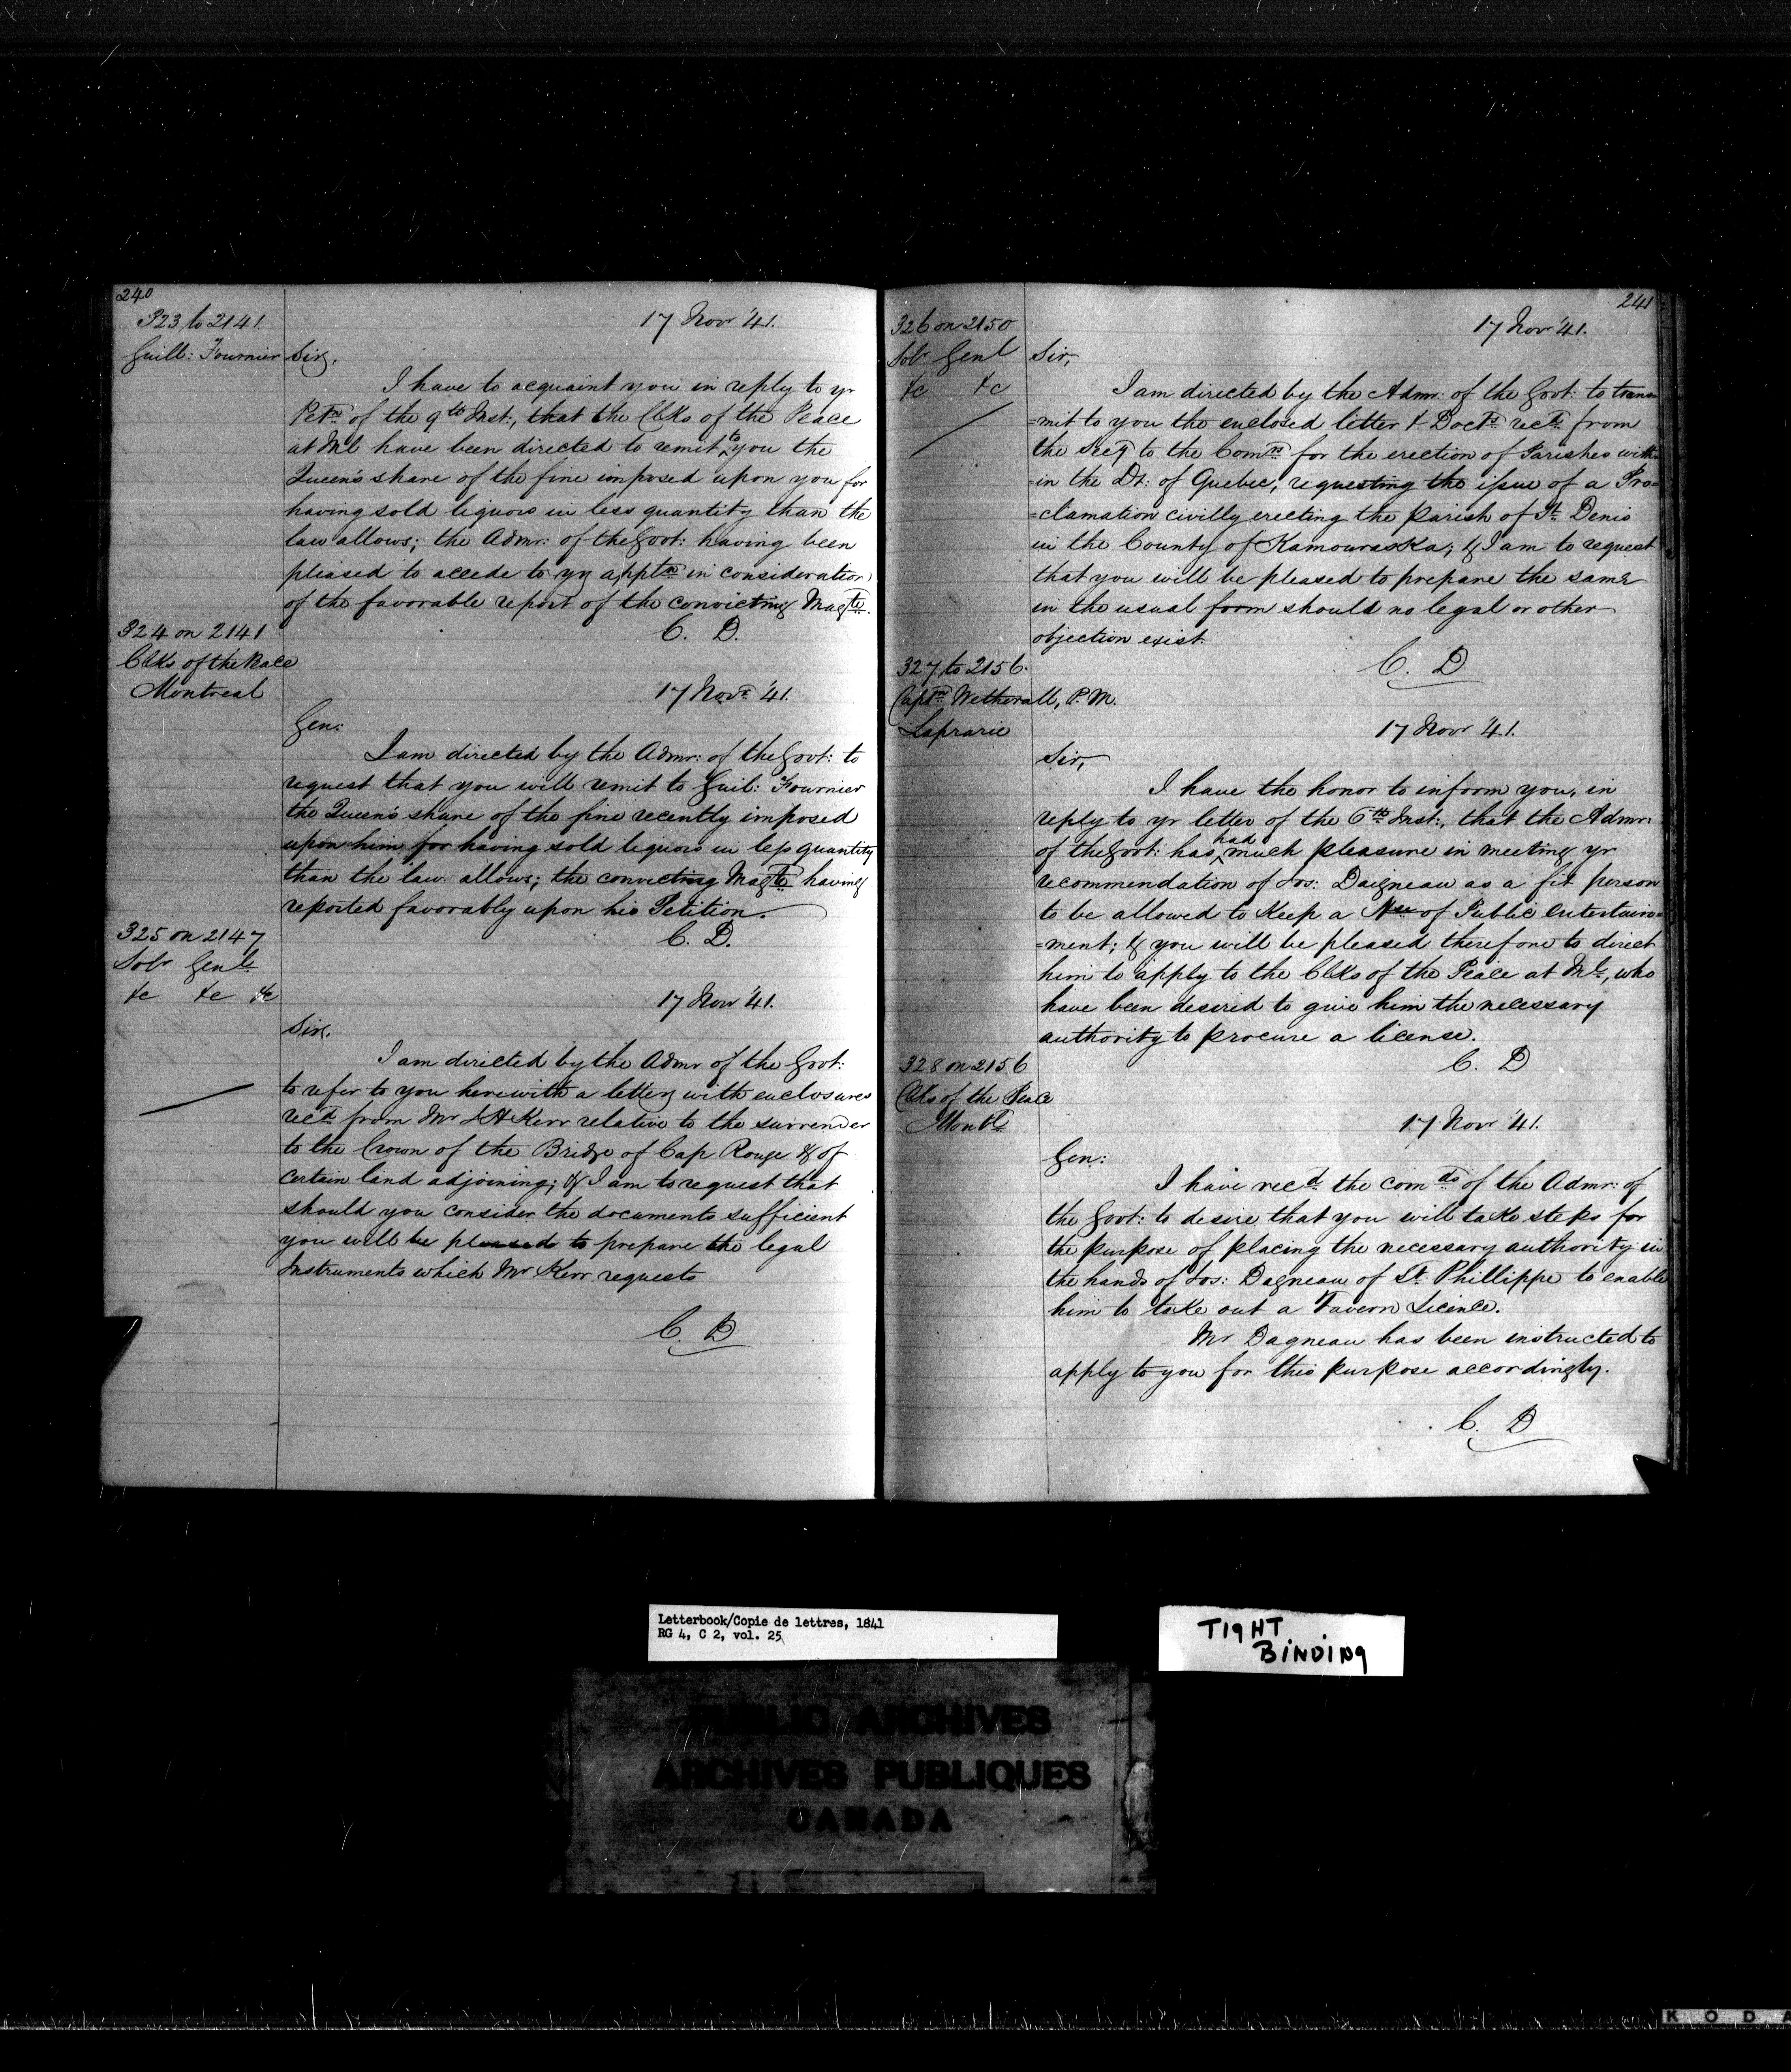 240
323 to 2141.
Guill: Fournier
17 Novr '41.
Sir,
I have to acquaint you in reply to yr
Petn of the 9th Inst:, that the Clks of the Peace
at Ml have been directed to remit to you the
Queen's share of the fine imposed upon you for
having sold liquors in less quantity than the
law allows; the Admr: of the Govt: having been
pleased to accede to yr appln in consideration
of the favorable report of the convicting Magte.
C. D.
324 on 2141
Clks of the Peace
Montreal
17 Novr '41.
Gen:
I am directed by the Admr: of the Govt: to
request that you will remit to Guil: Fournier
the Queen's share of the fine recently imposed
upon him for having sold liquors in less quantity
than the law allows; the convicting Magte having
reported favorably upon his Petition.
C. D.
325 on 2147
Solr Genl
&c &c &c
17 Novr '41.
Sir,
I am directed by the Admr of the Govt:
to refer to you herewith a letter with enclosures
recd from Mr Kerr relative to the surrender
to the Crown of the Bridge of Cap Rouge & of
certain land adjoining; & I am to request that
should you consider the documents sufficient
you will be pleased to prepare the legal
Instruments which Mr Kerr requests
C. D
241
326 on 2150
Solr Genl
&c &c
17 Novr '41.
Sir,
I am directed by the Admr: of the Govt: to trans=
=mit to you the enclosed letter & Docts recd from
the Secy to the Comrs for the erection of Parishes with=
=in the Dt: of Quebec, requesting the issue of a Pro=
=clamation civilly erecting the parish of St Denis
in the County of Kamouraska; & I am to request
that you will be pleased to prepare the same
in the usual form should no legal or other
objection exist.
C. D
327 to 2156.
Captn Wetherall, P.M.
Laprarie
17 Novr '41.
Sir,
I have the honor to inform you, in
reply to yr letter of the 6th Inst:, that the Admr:
of the Govt: has had much pleasure in meeting yr
recommendation of Jos: Daigneau as a fit person
to be allowed to keep a Hse of Public Entertain=
=ment; & you will be pleased therefore to direct
him to apply to the Clks of the Peace at Ml, who
have been desired to give him the necessary
authority to procure a license.
C. D
328 on 2156
Clks of the Peace
Montl
17 Novr '41.
Gen:
I have recd the comds of the Admr: of
the Govt: to desire that you will take steps for
the purpose of placing the necessary authority in
the hands of Jos: Dagneau of St Phillippe to enable
him to take out a Tavern Licence.
Mr Dagneau has been instructed to
apply to you for this purpose accordingly.
C. D
Letterbook/Copie de lettres, 1841
RG 4, C 2, vol. 25
TIGHT
BINDING
PUBLIC ARCHIVES
ARCHIVES PUBLIQUES
CANADA
KODA